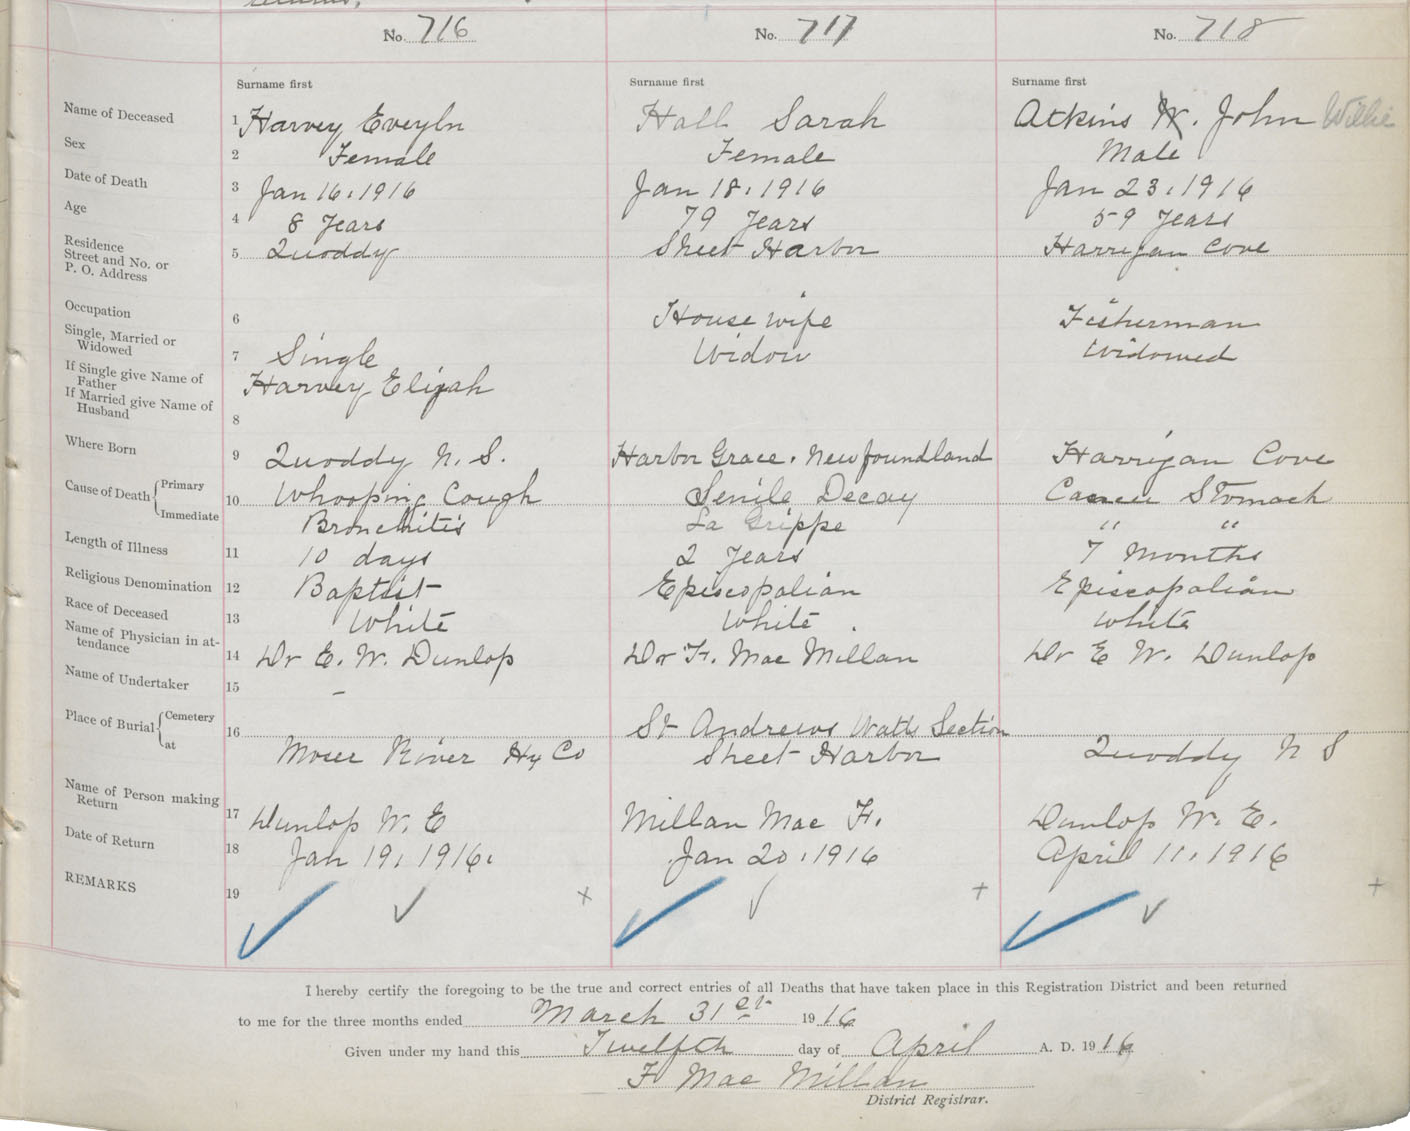 No. 716
No. 717
No. 718
Surname first
Surname first
Surname first
Name of Deceased 1 Harvey Eveyln
Hall Sarah
Atkins W. John Willie
Sex 2 Female
Female
Male
Date of Death 3 Jan 16, 1916
Jan 18, 1916
Jan 23, 1916
Age 4 8 Years
79 Years
59 Years
Residence
Street and No. or
P. O. Address
5 Quoddy
Sheet Harbor
Harrigan Cove
Occupation 6
House wife
Fisherman
Single, Married or
Widowed
7 Single
Widow
Widowed
If Single give Name of
Father
Harvey Elijah
If Married give Name of
Husband
8
Where Born 9 Quoddy N. S.
Harbor Grace. Newfoundland
Harrigan Cove
Cause of Death { Primary
Immediate
10 Whooping Cough
Senile Decay
Cancer Stomach
Bronchitis
La Grippe
" "
Length of Illness 11 10 days
2 Years
7 Months
Religious Denomination 12 Baptist
Episcopalian
Episcopalian
Race of Deceased 13 White
White
White
Name of Physician in at-
tendance
14 Dr E. W. Dunlop
Dr F. Mac Millan
Dr E W. Dunlop
Name of Undertaker 15 –
Place of Burial { Cemetery
at
16
St Andrews Watts Section
Moser River Hx Co
Sheet Harbor
Quoddy N S
Name of Person making
Return
17 Dunlop W. E
Millan Mac F.
Dunlop W. E.
Date of Return 18 Jan 19, 1916.
Jan 20, 1916
April 11, 1916
REMARKS 19
I hereby certify the foregoing to be the true and correct entries of all Deaths that have taken place in this Registration District and been returned
to me for the three months ended March 31st 1916
Given under my hand this Twelfth day of April A. D. 1916
F Mac Millan
District Registrar.